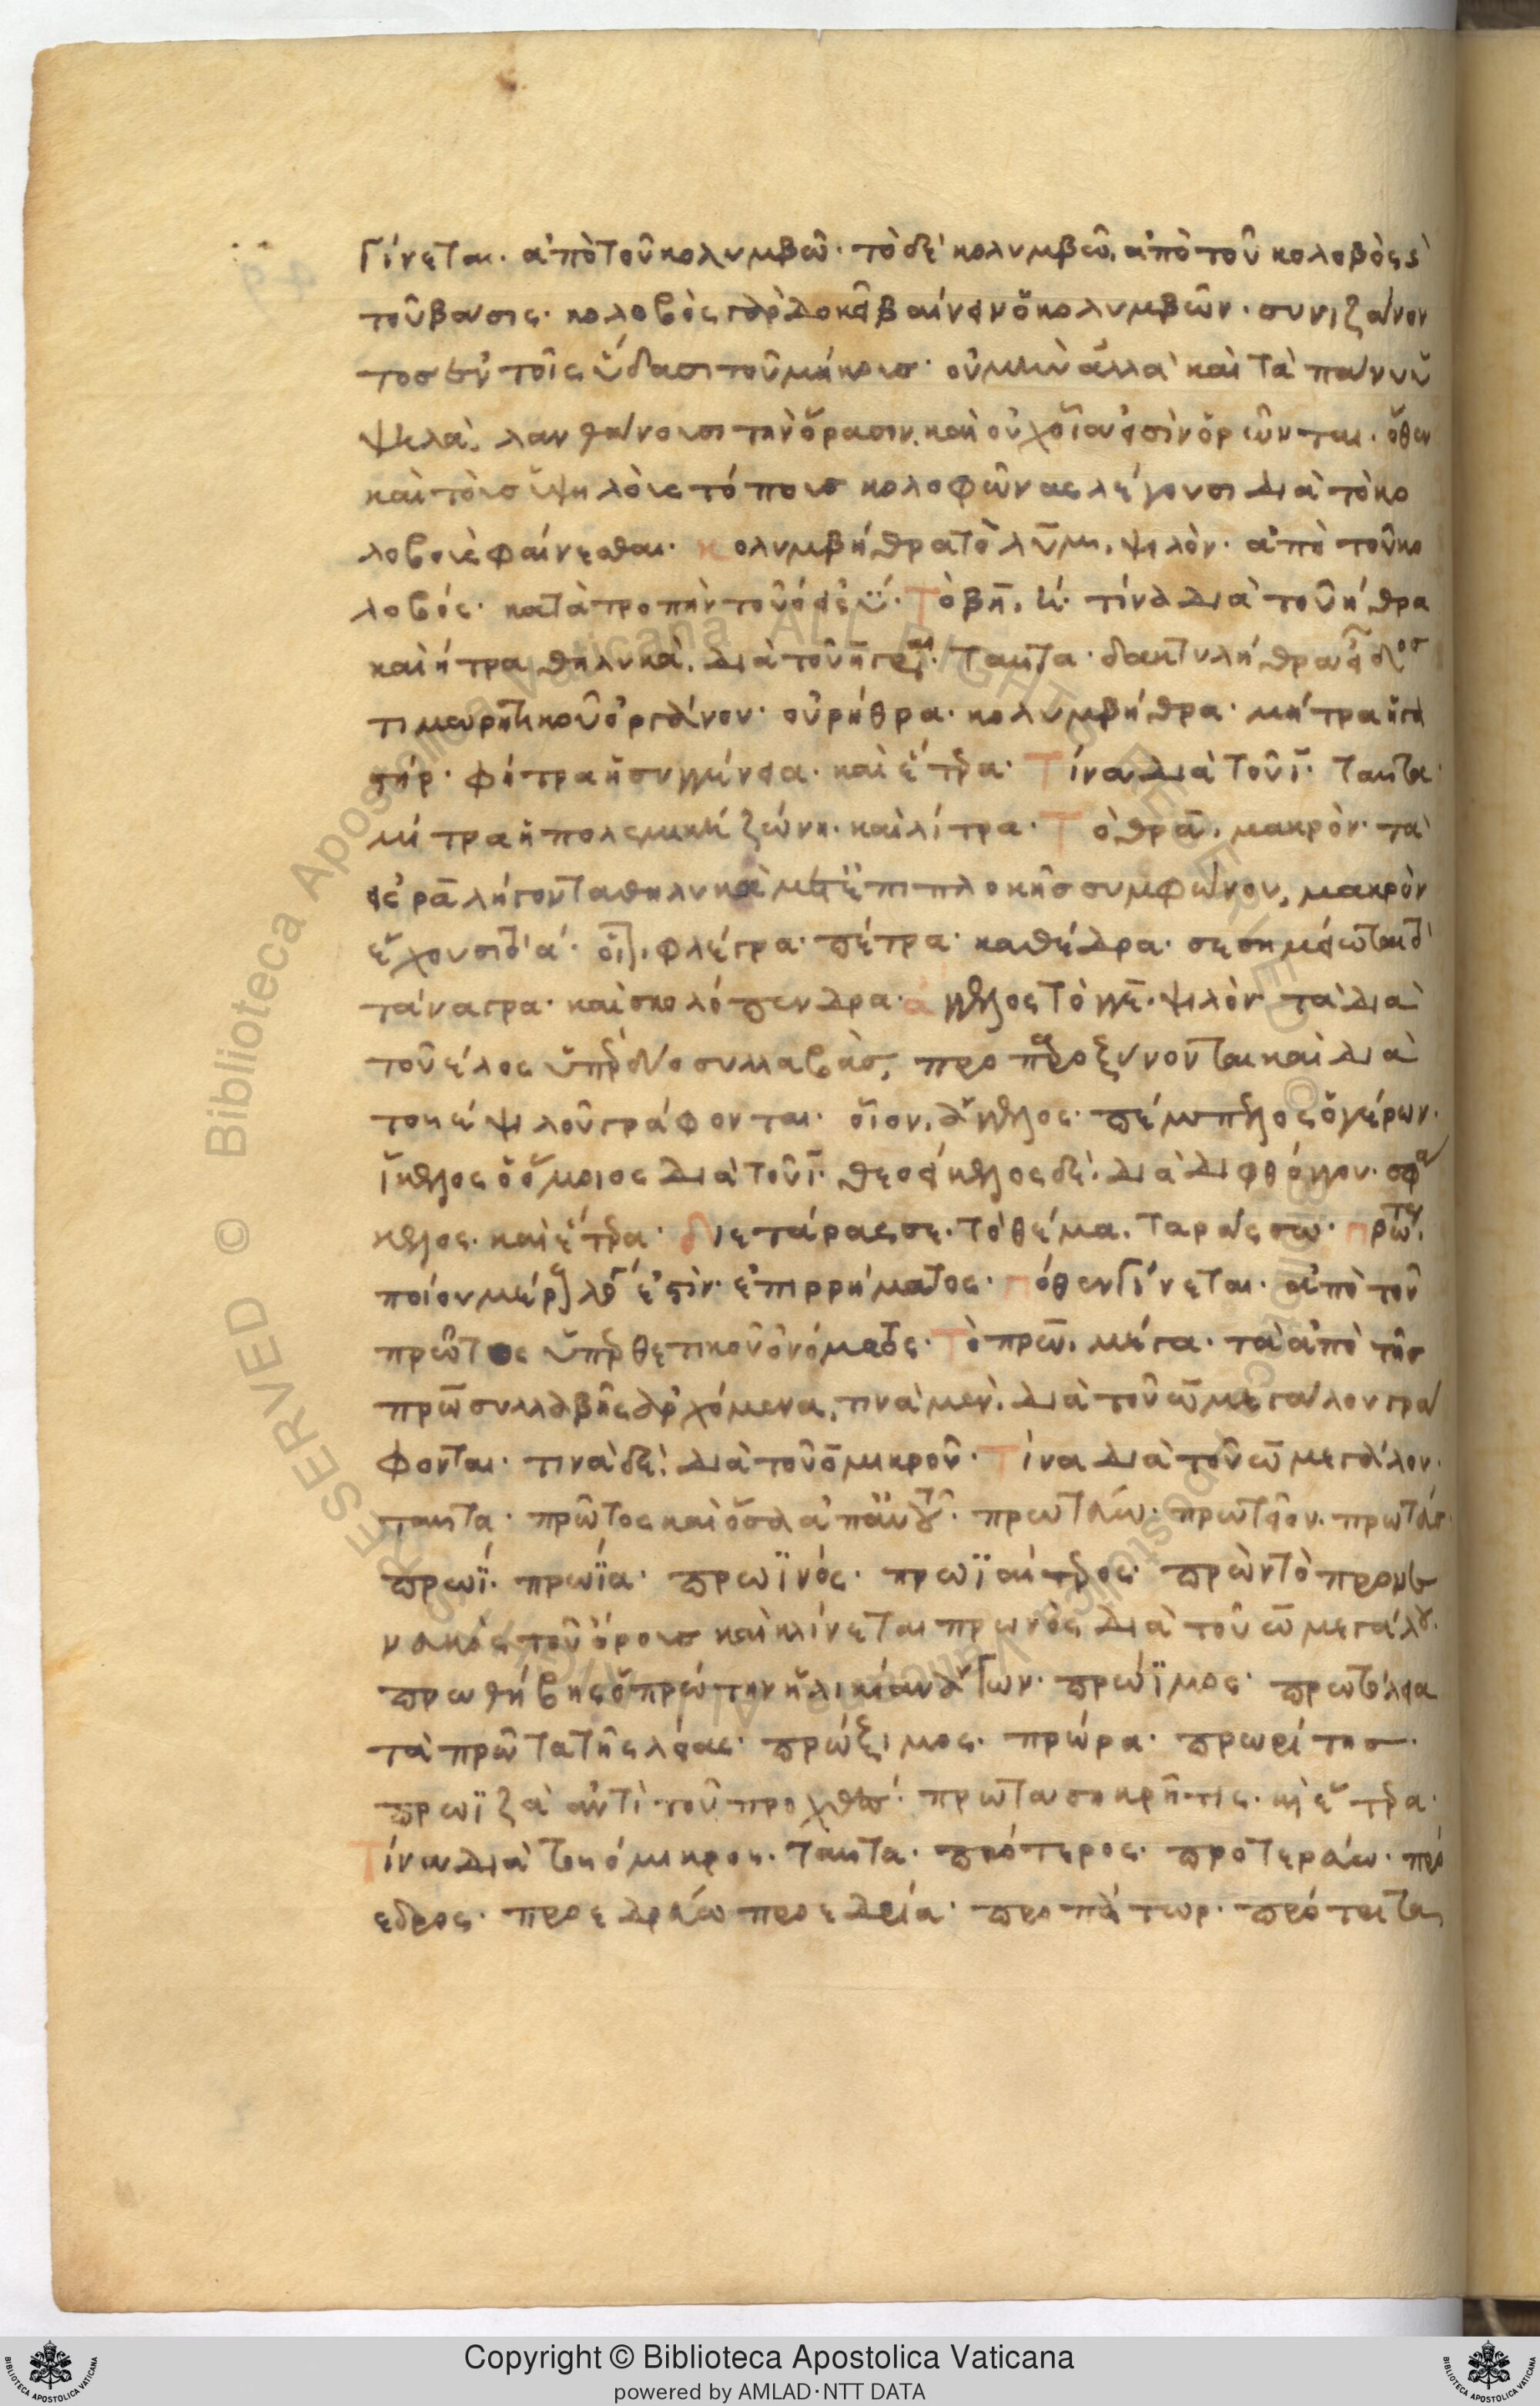 γίνεται· ἀπὸ τοῦ κολυμβῶ· τὸ δὲ κολυμβῶ, ἀπὸ τοῦ κολοβὸς ϗ
τοῦ βάσις· κολοβὸς γὰρ δοκεῖ βαίνειν ὁ κολυμβῶν· συνιζάνον
τοσ ἐν τοῖς ὕδασι τοῦ μήκους· οὐ μὴν ἀλλὰ καὶ τὰ πάνυ ὑ
ψηλὰ, λανθάνουσι τὴν ὅρασιν, καὶ οὐχ οἷα εἰσὶν ὁρῶνται· ὅθεν
καὶ τοὺσ ὑψηλοὺς τόπουσ κολοφῶνας λέγουσι διὰ τὸ κο
λοβοὺς φαίνεσθαι· κολυμβήθρα τὸ λῡμ, ψιλὸν· ἀπὸ τοῦ κο
λοβός· κατὰ τροπὴν τοῦ ό εἰς ύ· Τὸ βη, η· τίνα διὰ τοῦ ήθρα
καὶ ήτρα θηλυκὰ, διὰ τοῦ η γράφεται· ταῦτα· δακτυλήθρα εἶδοσ
τιμωρητικοῦ ὀργάνου· οὐρήθρα· κολυμβήθρα· μήτρα ἡ γα
στήρ· φήτρα ἡ συγγένεια· καὶ ἕτερα· Τίνα διὰ τοῦ ι· ταῦτα·
μίτρα ἡ πολεμικὴ ζώνη· καὶ λίτρα· Τὸ θρα, μακρὸν· τὰ
εἰς ρα λήγοντα θηλυκὰ μετ' ἐπιπλοκῆσ συμφώνου, μακρὸν
ἔχουσι τὸ α· οἷον, φλέγρα· πέτρα· καθέδρα· σεσημείωται τὸ
τάναγρα· καὶ σκολόπενδρα· ἄγγελος τὸ γγε, ψιλὸν· τὰ διὰ
τοῦ έλος ὑπὲρ δύο συλλαβὰσ, προπαροξύνονται καὶ διὰ
τοῦ έ ψιλοῦ γράφονται· οἷον, ἄγγελος· πέμπελος ὁ γέρων·
ἴκελος ὁ ὅμοιος διὰ τοῦ ι· θεοείκελος δὲ, διὰ διφθόγγου· σφά
κελος· καὶ ἕτερα· διετάραςσε· τὸ θέμα, ταράςσω· πρώτη,
ποίου μέρους λόγου ἐστὶν· ἐπιρρήματος· πόθεν γίνεται· ἀπὸ τοῦ
πρῶτος ὑπερθετικοῦ ὀνόματος· Τὸ πρω, μέγα· τὰ ἀπὸ τῆσ
πρω συλλαβῆς ἀρχόμενα, τινὰ μὲν, διὰ τοῦ ω μεγάλου γρά
φονται· τινὰ δὲ, διὰ τοῦ ο μικροῦ· Τίνα διὰ τοῦ ω μεγάλου·
ταῦτα· πρῶτος καὶ ὅσα ἀπ' αὐτοῦ· πρωτεύω· πρωτεῖον·
πρωΐ· πρωΐα· πρωϊνός· πρωϊαίτερος· πρὼν τὸ προμε
καὶ κλίνεται πρωνὸς διὰ τοῦ ω μεγάλου·
πρωθήβης ὁ πρώτην ἡλικίαν ἄγων· πρώϊμος· πρωτόλεια
τὰ πρῶτα τῆς λείας· πρώξιμος· πρώρα· πρωρίτησ·
πρωϊζὰ ἀντὶ τοῦ προχθὲσ· πρωτασηκρῆτις· ϗ ἕτερα·
Τίνα διὰ τοῦ ό μικροῦ· ταῦτα· πρότερος· προτεραίω· πρό
εδρος· προεδρεύω προεδρία· προπάτωρ·